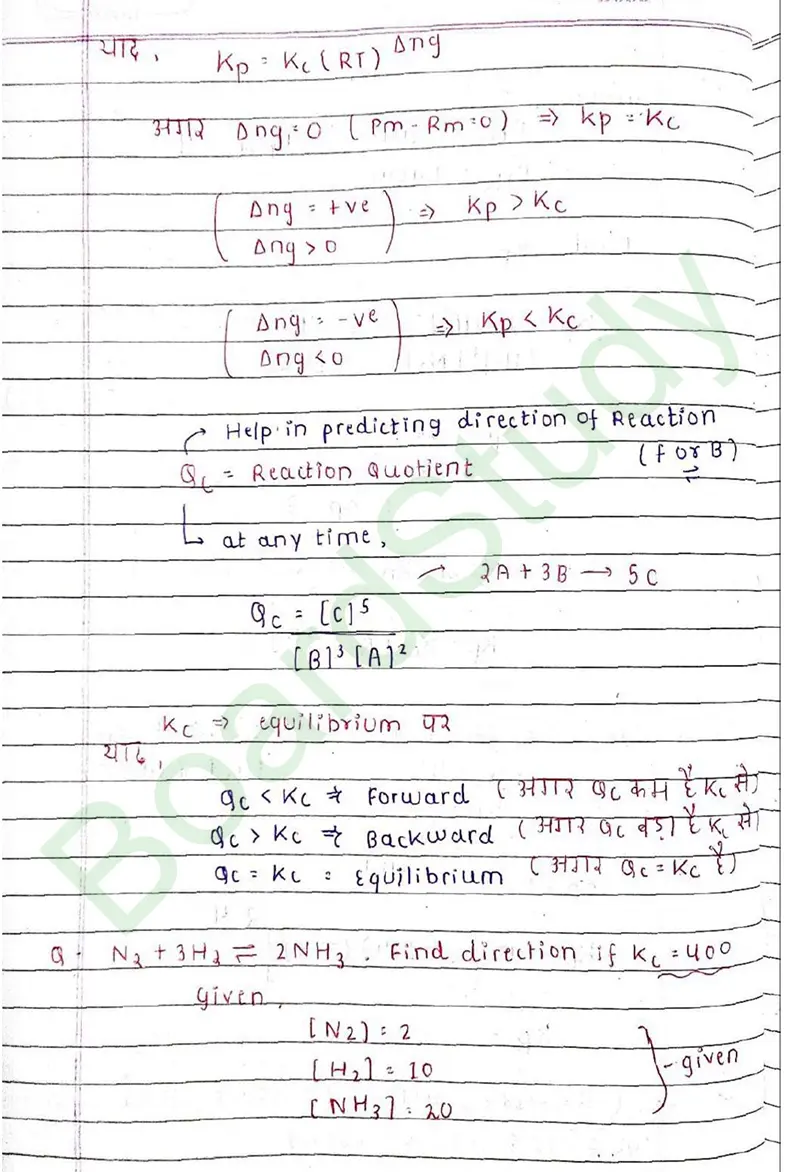 याद,
Kp = Kc (RT) Δng
अगर Δng = 0 ( Pm - Rm = 0 ) => kp = Kc
Δng = +ve => Kp > Kc
Δng > 0
Δng = -ve => Kp < Kc
Δng < 0
Help in predicting direction of Reaction
(f or B)
Qc = Reaction Quotient
at any time,
2A + 3B → 5C
Qc = [C]5
[B]3 [A]2
Kc => equilibrium पर
याद,
qc < Kc => Forward ( अगर Qc कम है Kc से)
Qc > Kc => Backward ( अगर Qc बड़ा है Kc से)
qc = Kc = Equilibrium ( अगर Qc = Kc है)
Q. N2 + 3H2 ⇌ 2NH3. Find direction if Kc = 400
given,
[N2] = 2
[H2] = 10
- given
[NH3] = 20
BoardStudy